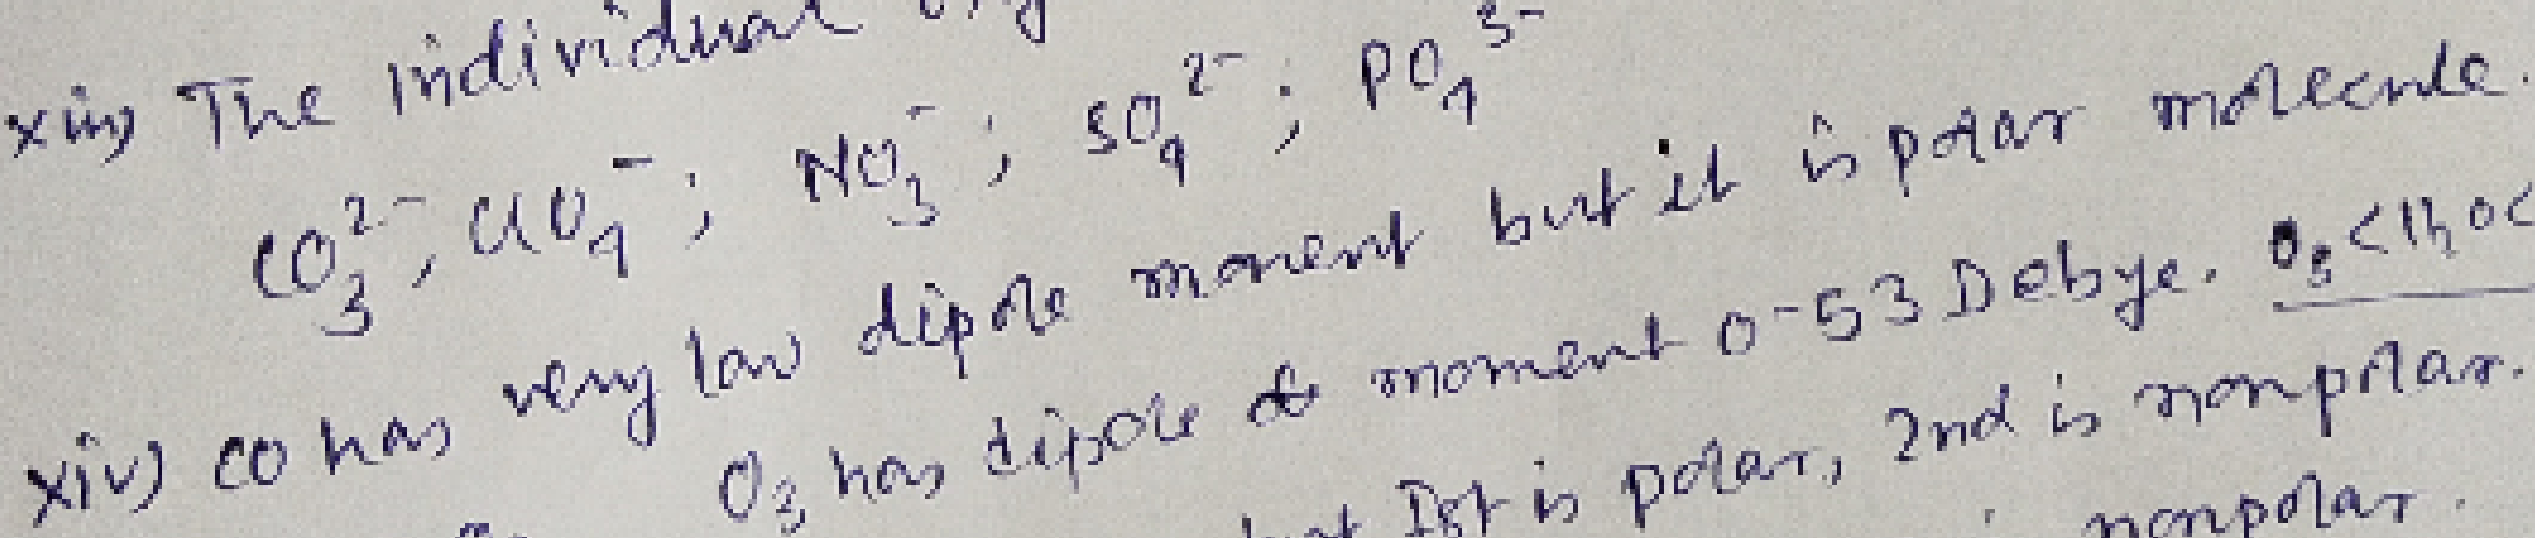 xiii) The individual
CO₃²⁻, ClO₄⁻; NO₃⁻; SO₄²⁻; PO₄³⁻
xiv) CO has very low dipole moment but it is polar molecule.
O₃ has dipole moment 0.53 Debye. O₃ < H₂O <
but Ist is polar, 2nd is nonpolar.
nonpolar.